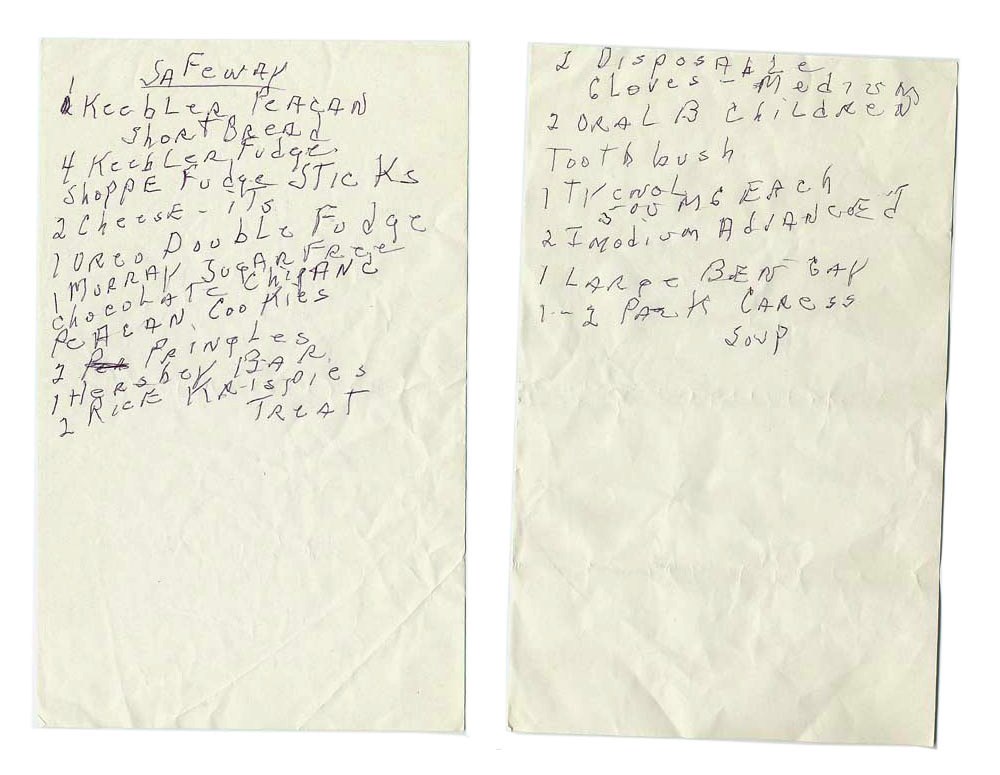 SAFeWAY
1 KeebLer PeACAN
ShortBread
4 KeebLer Fudge
ShoppE Fudge STicKs
2 CheesE - iTS
1 Oreo DoubLe Fudge
1 MurrAy SugAr Free
ChocoLATe Chip ANC
PeACAN CooKies
2 PringLes
1 Hershey BAR
2 RicE Krispies
TreAT
2 DisposAbLe
GLoves - Medium
2 ORAL B ChiLdreN
Tooth bush
1 TyLenoL
500 MG EAch
2 Imodium AdvANcEd
1 LArge BEN GAy
1 - 2 PAcK CAress
Soup